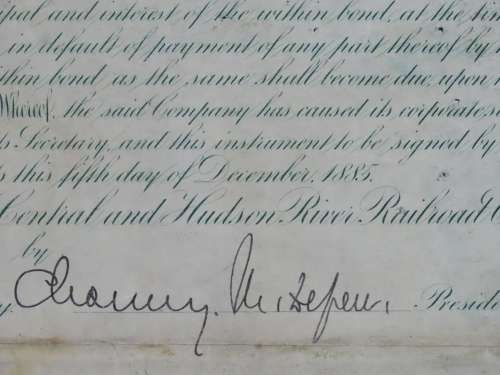 pal and interest of the within bond, at the
in default of payment of any part thereof by
within bond as the same shall become due, upon
Whereof, the said Company has caused its corporate
Secretary, and this instrument to be signed by
this fifth day of December, 1885.
Central and Hudson River Railroad
by
Chauncey M. Depew. Preside